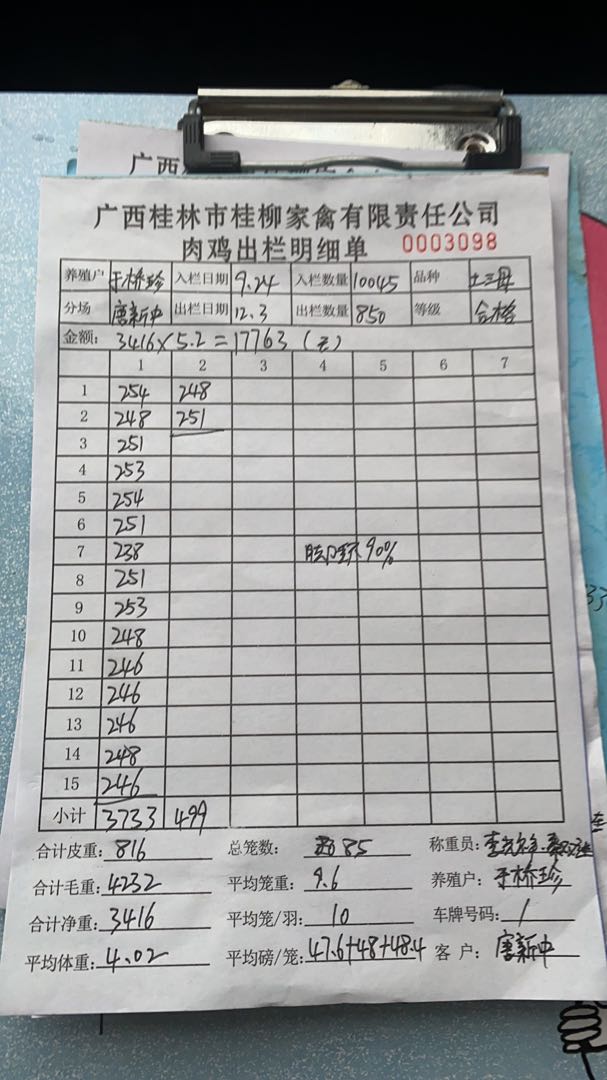 广西桂林市桂柳家禽有限责任公司
肉鸡出栏明细单 0003098
养殖户 于桥珍 入栏日期 9.24 入栏数量 10045 品种 土三母
分场 唐新中 出栏日期 12.3 出栏数量 850 等级 合格
金额: 3416×5.2=17763(元)
1 2 3 4 5 6 7
1 254 248
2 248 251
3 251
4 253
5 254
6 251
7 238 90%
8 251
9 253
10 248
11 246
12 246
13 246
14 248
15 246
小计 3733 499
合计皮重: 816 总笼数: 85 称重员:
合计毛重: 4232 平均笼重: 9.6 养殖户: 于桥珍
合计净重: 3416 平均笼/羽: 10 车牌号码: /
平均体重: 4.02 平均磅/笼: 47.6+48+48.4 客户: 唐新中